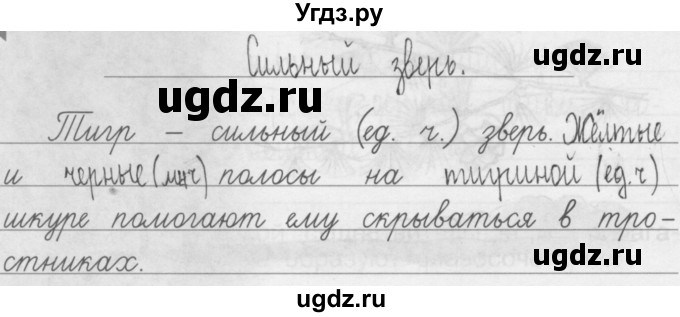 Угдз.ру
Сильный зверь.
ugdz.ru
ugdz.ru
Тигр – сильный (ед. ч.) зверь. Жёлтые
и черные (мн ч) полосы на тигриной (ед. ч)
шкуре помогают ему скрываться в тро-
ugdz.ru
стниках.
ugdz.ru